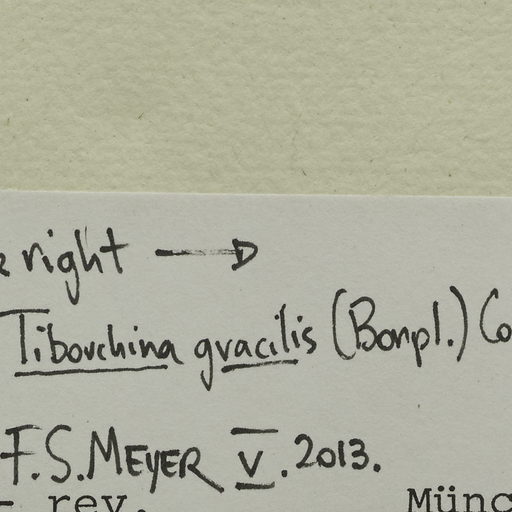 right →
Tibouchina gracilis (Bonpl.) Co
F.S. MEYER V. 2013.
- rev. Münc